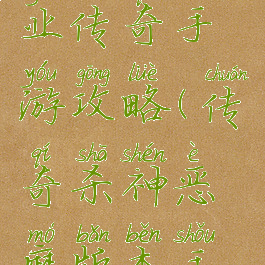 业传奇手
yóu gōng lüè chuán
游攻略(传
qí shā shén è
奇杀神恶
mó bǎn běn shǒu
魔版本手